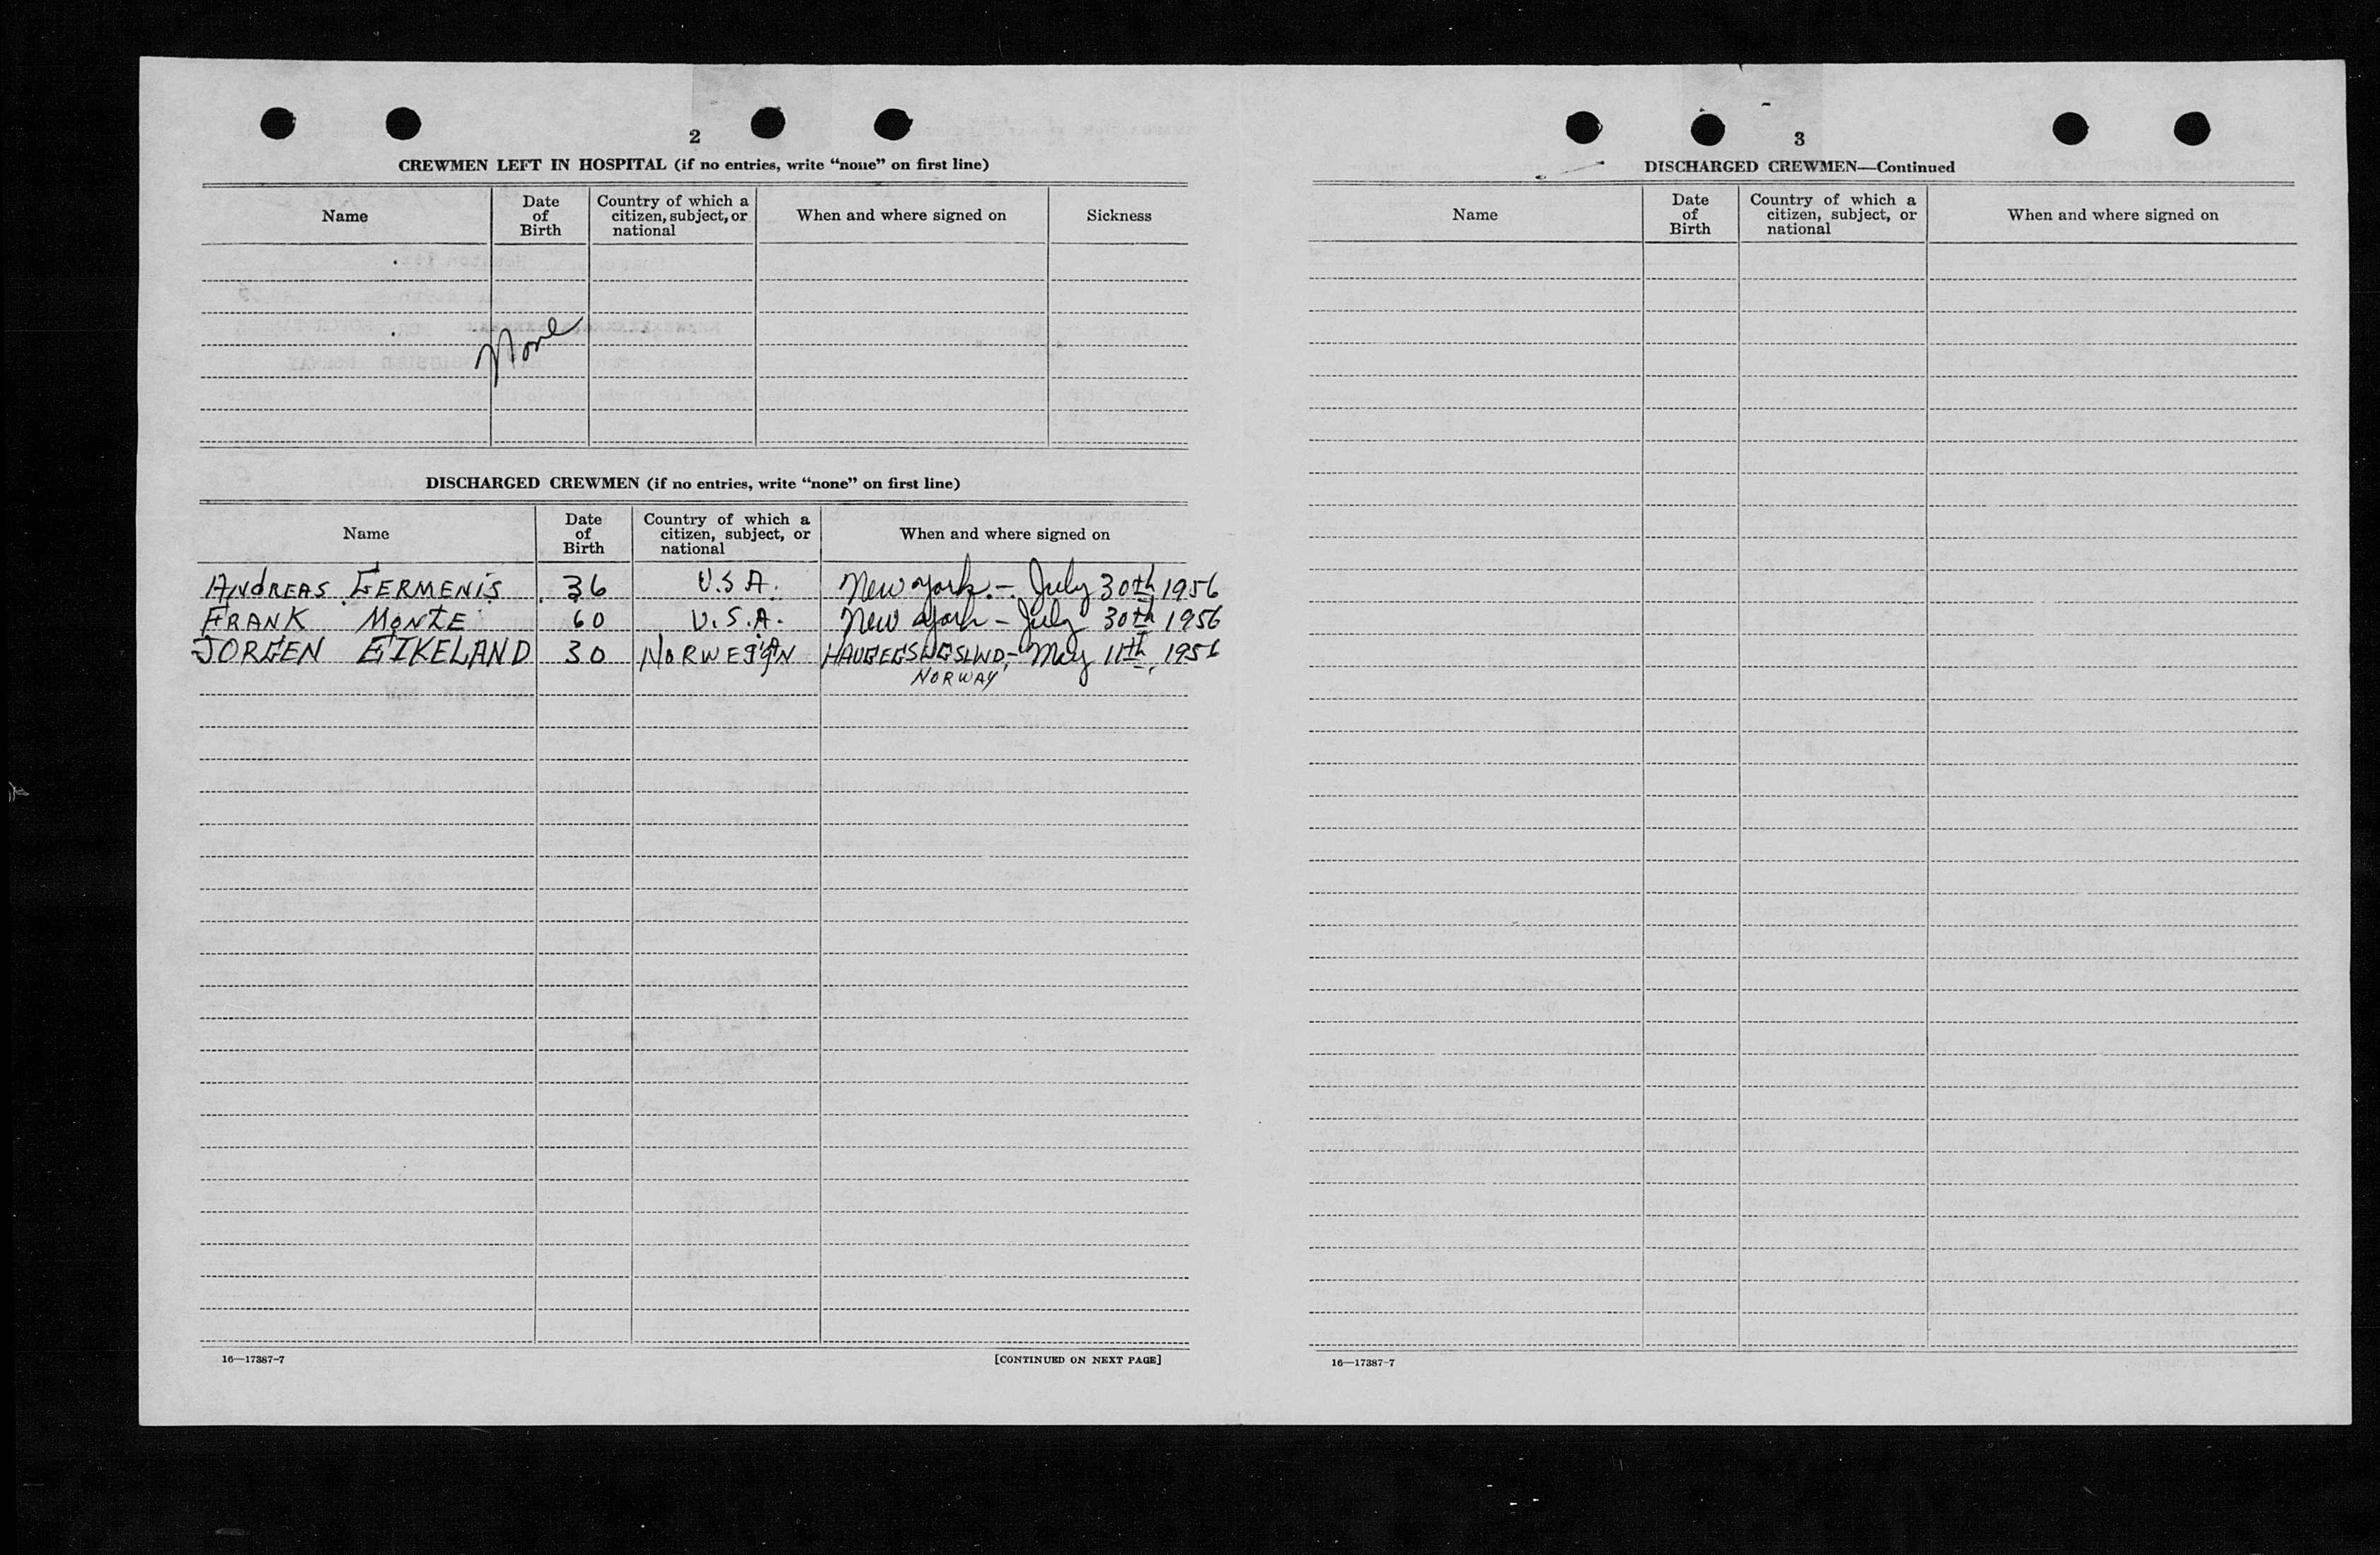 2
CREWMEN LEFT IN HOSPITAL (if no entries, write “none” on first line)
Name
Date of Birth
Country of which a citizen, subject, or national
When and where signed on
Sickness
None
DISCHARGED CREWMEN (if no entries, write “none” on first line)
Name
Date of Birth
Country of which a citizen, subject, or national
When and where signed on
ANDREAS GERMENIS 36 U.S.A. New York. - July 30th 1956
FRANK MONTE 60 U.S.A. New York - July 30th 1956
JORGEN EIKELAND 30 NORWEGIAN May 11th, 1956
NORWAY
16—17387-7
[CONTINUED ON NEXT PAGE]
3
DISCHARGED CREWMEN—Continued
Name
Date of Birth
Country of which a citizen, subject, or national
When and where signed on
16—17387-7